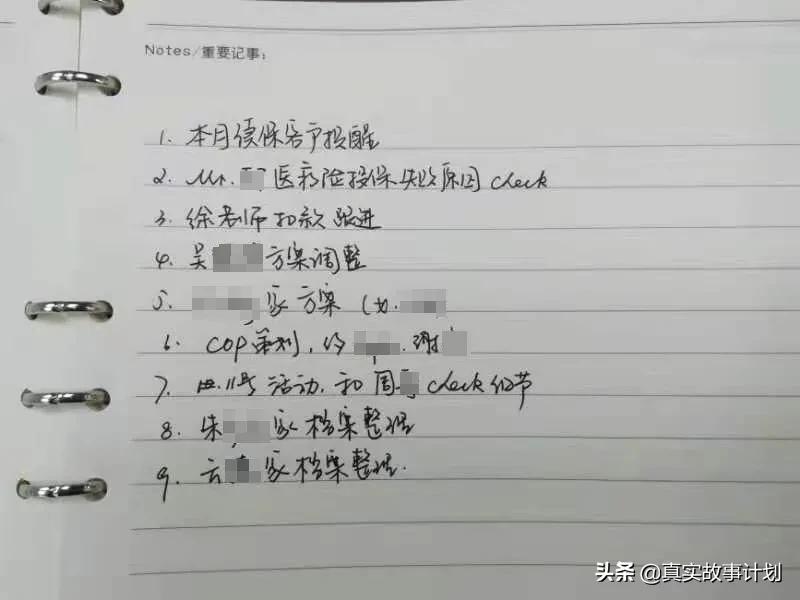 Notes/重要记事:
1. 本月续保客户提醒
2. Mr. 医疗险投保失败原因 check
3. 徐老师扣款跟进
4. 吴 方案调整
5. 家方案
6. COP策划, 谢
7. 11号活动. 和周 check 细节
8. 朱 家档案整理
9. 云 家档案整理.
头条 @真实故事计划